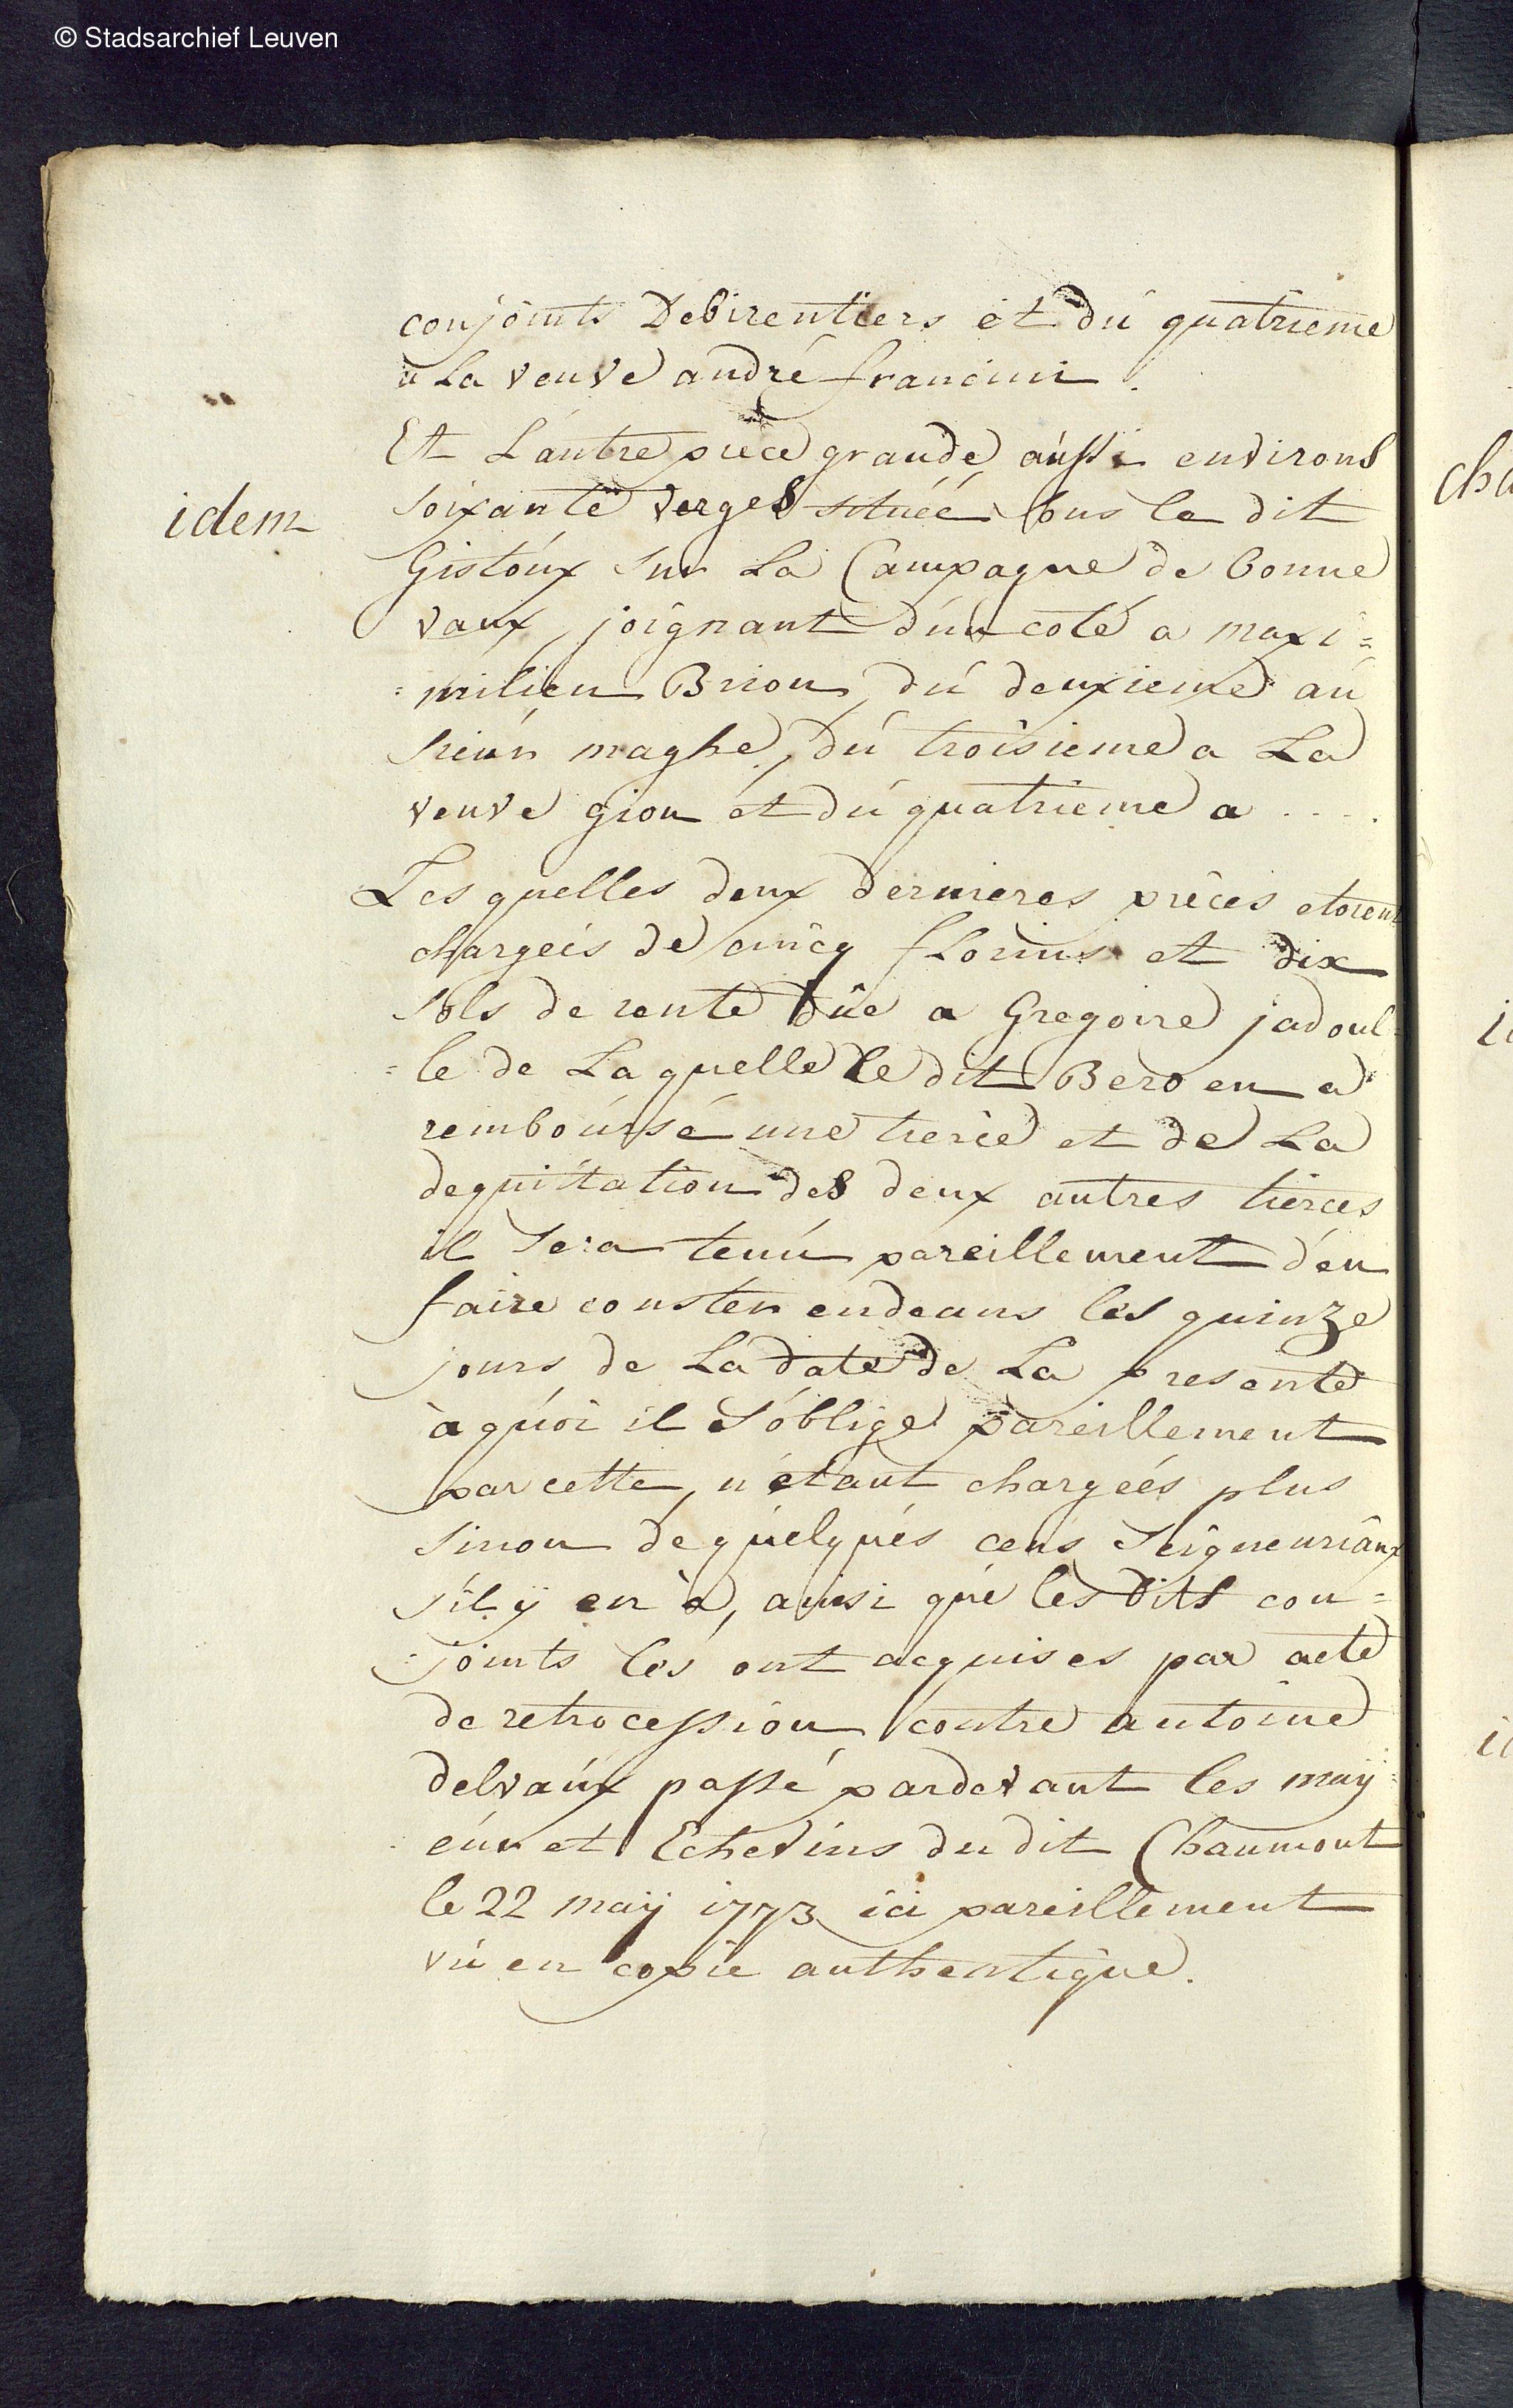 © Stadsarchief Leuven
conjoints Debirentiers et dú quatrieme
a La veuve andré francini.
Et L'autre piece grande aússi environs
idem
soixante verges située sous le dit
Gistoúx sur La Campagne de bonne
vaux, joignant d'un coté a maxi=
=milien Brion, dú deuxieme aú
sieúr maghe, dú troisieme a La
veuve gion et dú quatrieme a ....
Les quelles deux dernieres piéces etoient
chargeés de cincq florins et dix
sols de rente dûe a Gregoire jadoul=
=le de Laquelle le dit Bero en a
remboúrsé une tierce et de La
dequittation des deux autres tierces
il Sera tenú pareillement d'en
faire conster endeans les quinze
jours de La date de La presente
à quoi il s'oblige pareillement
par cette, n'etant chargeés plus
sinon de quelques cens Seigneuriaux
s'il ÿ en a, ainsi que les dits con=
=joints les ont acquises par acte
de retrocession contre antoine
delvaúx passé pardevant les maÿ=
=eúr et Echevins du dit Chaumont
le 22 maÿ 1773 ici pareillement
vú en copie authentique.